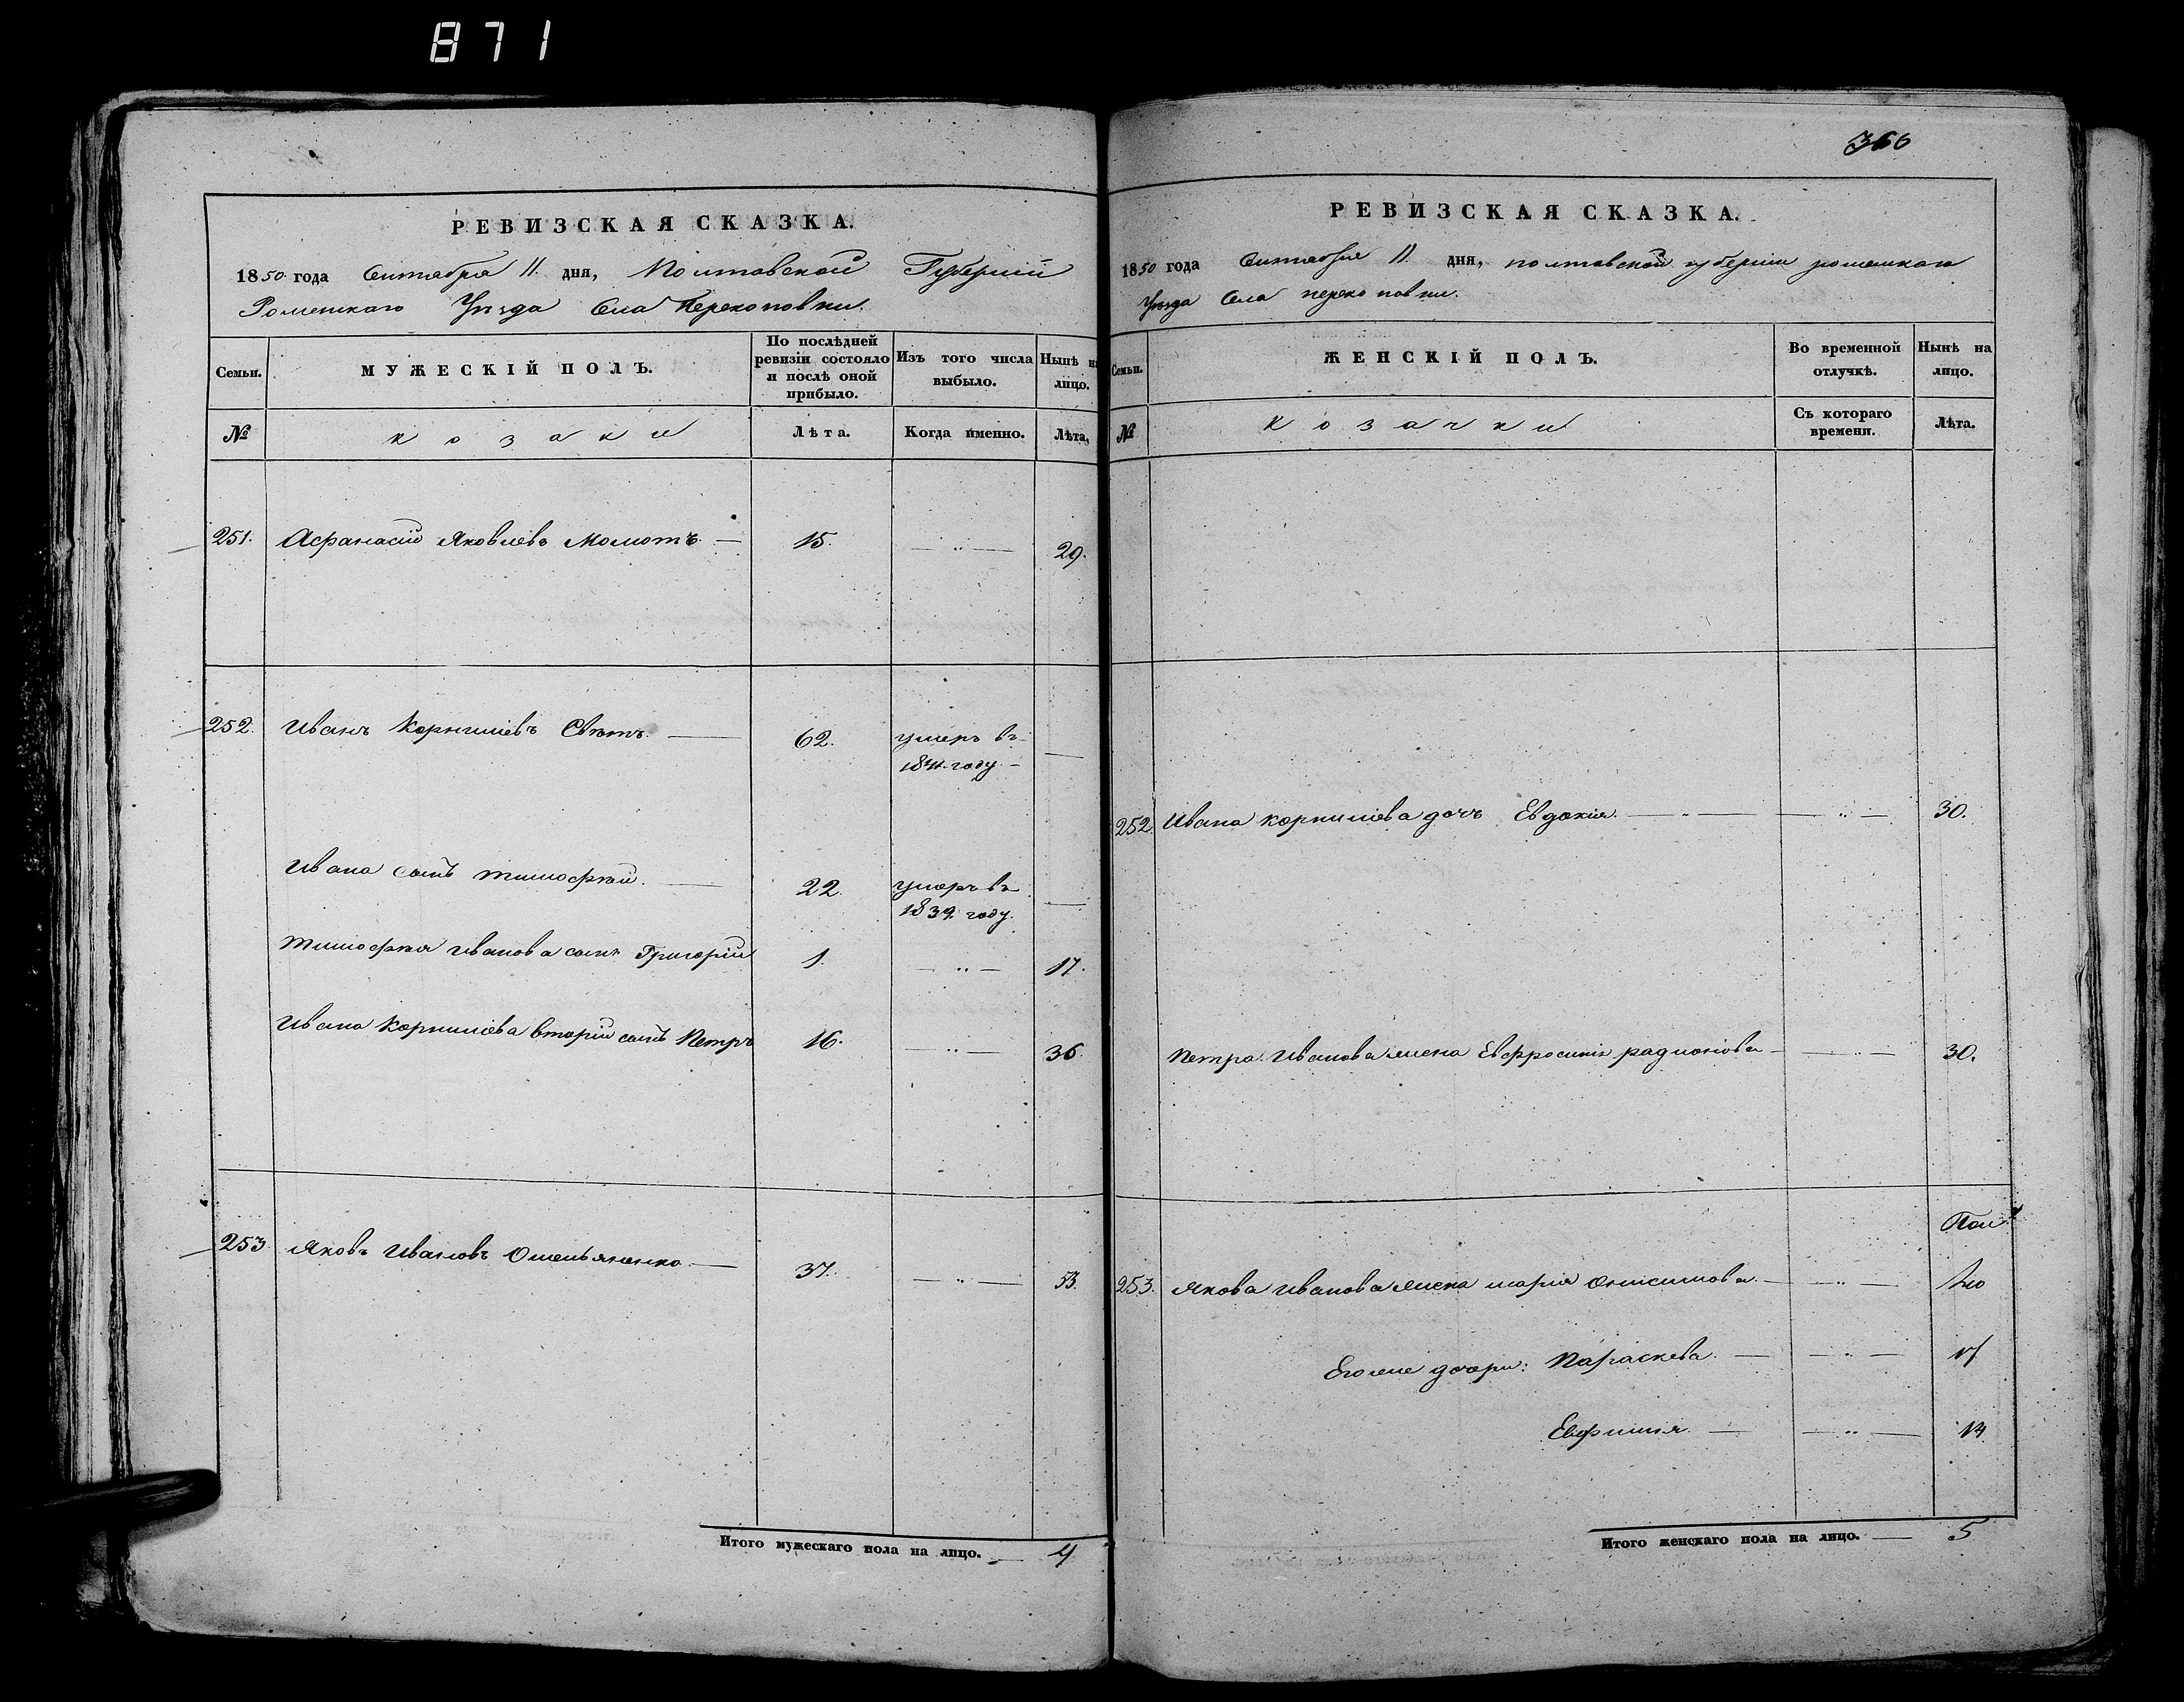 871
РЕВИЗСКАЯ СКАЗКА.
1850 года Сентября 11. дня, Полтавской Губерніи
Роменскаго Уѣзда Села Перекоповки.
Семьи.
МУЖЕСКІЙ ПОЛЪ.
По послѣдней ревизіи состояло и послѣ оной прибыло.
Изъ того числа выбыло.
Нынѣ на лицо.
№
козаки
Лѣта.
Когда именно.
Лѣта.
251. Афанасій Яковлевъ Моломтъ. — 15. — „ — 29.
252. Иванъ Корнилієвъ Свѣтъ. — 62. умеръ въ —
году. —
Ивана сынъ Тимофѣй. — 22. умеръ въ —
1839. году.
Тимофѣя Иванова сынъ Григорій 1. — „ — 17.
Ивана Корнилієва вторій сынъ Петръ 16. — „ — 36.
253 Яковъ Ивановъ Омельяненко — 37. — „ — 53.
Итого мужескаго пола на лицо. — 4
366
РЕВИЗСКАЯ СКАЗКА.
1850 года Сентября 11. дня, полтавской губерніи роменскаго
Уѣзда Села перекоповки.
Семьи.
ЖЕНСКІЙ ПОЛЪ.
Во временной отлучкѣ.
Нынѣ на лицо.
№
козачки
Съ котораго времени.
Лѣта.
252. Ивана корнилієва дочь Евдокія. — „ — — „ — 30.
Петра Иванова жена Евфросинія радионова — — „ — 30.
253. Якова Иванова жена марія онисимова. — — „ —
Его же дочери: Параскева. — — „ — 17
Евфимия. — — „ — 14
Итого женскаго пола на лицо. — 5